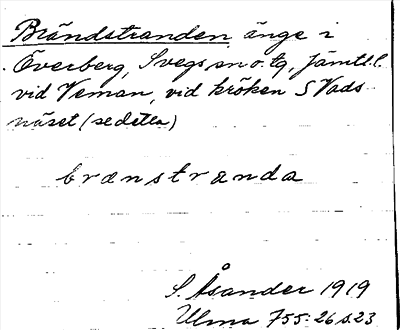 Brändstranden, änge i
Överberg, Svegs sn o. tg, Jämtl. l.
vid Veman, vid kröken S Vads
näset (se detta)
brænstranda
S. Åsander 1919
Ulma 755:26 s. 23